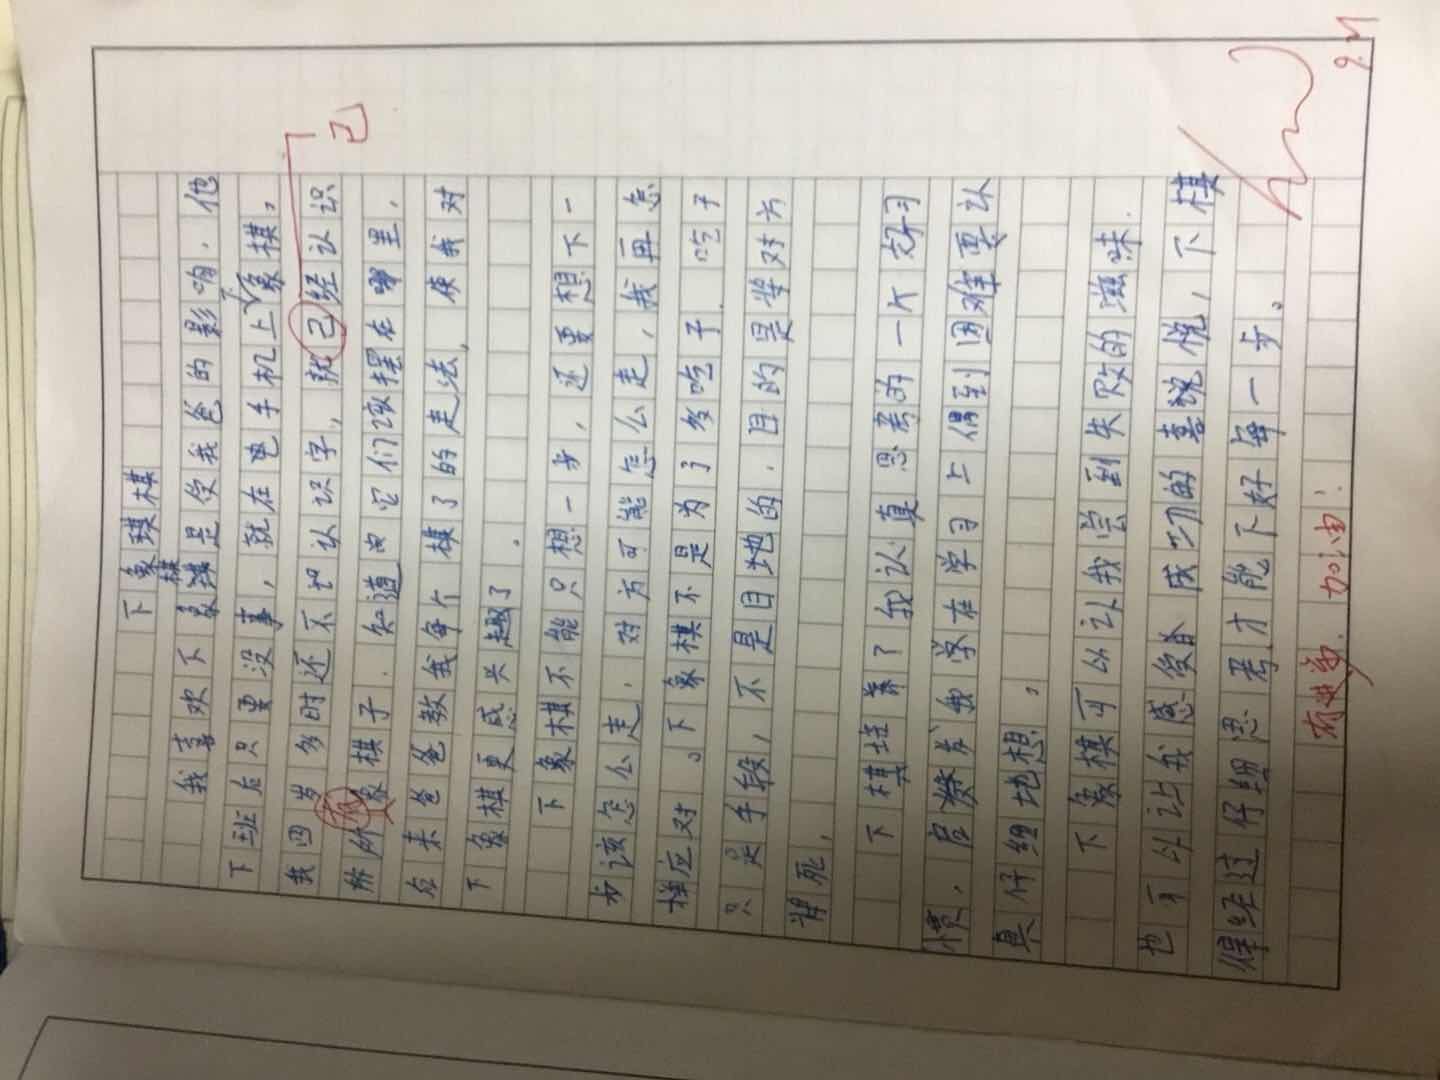 下象琪棋
棋
我喜欢下象棋是受我爸的影响，他
下班后只要没事，就在电手机上下象棋，
我四岁多时还不认识字，就己经认识
所所有象棋子．知道它们该摆在哪里，
己
后来爸爸教我每个棋了的走法，使我对
下象棋更感兴趣了．
下象棋不能只想一步，还要想下一
步该怎么走．对方可能怎么走，我再怎
样应对。下象棋不是为了多吃子．吃子
只是手段，不是目地的．目的是将对方
将死，
下棋培养了我认真思考的一个好习
惯．启发我学在学习上偶到困难要认
真仔细地想。
下象棋可以让我尝到失败的滋味．
也可以让我感受成功的喜悦，下棋
得经过仔细思考才能下好每一步。
有进步．加油！